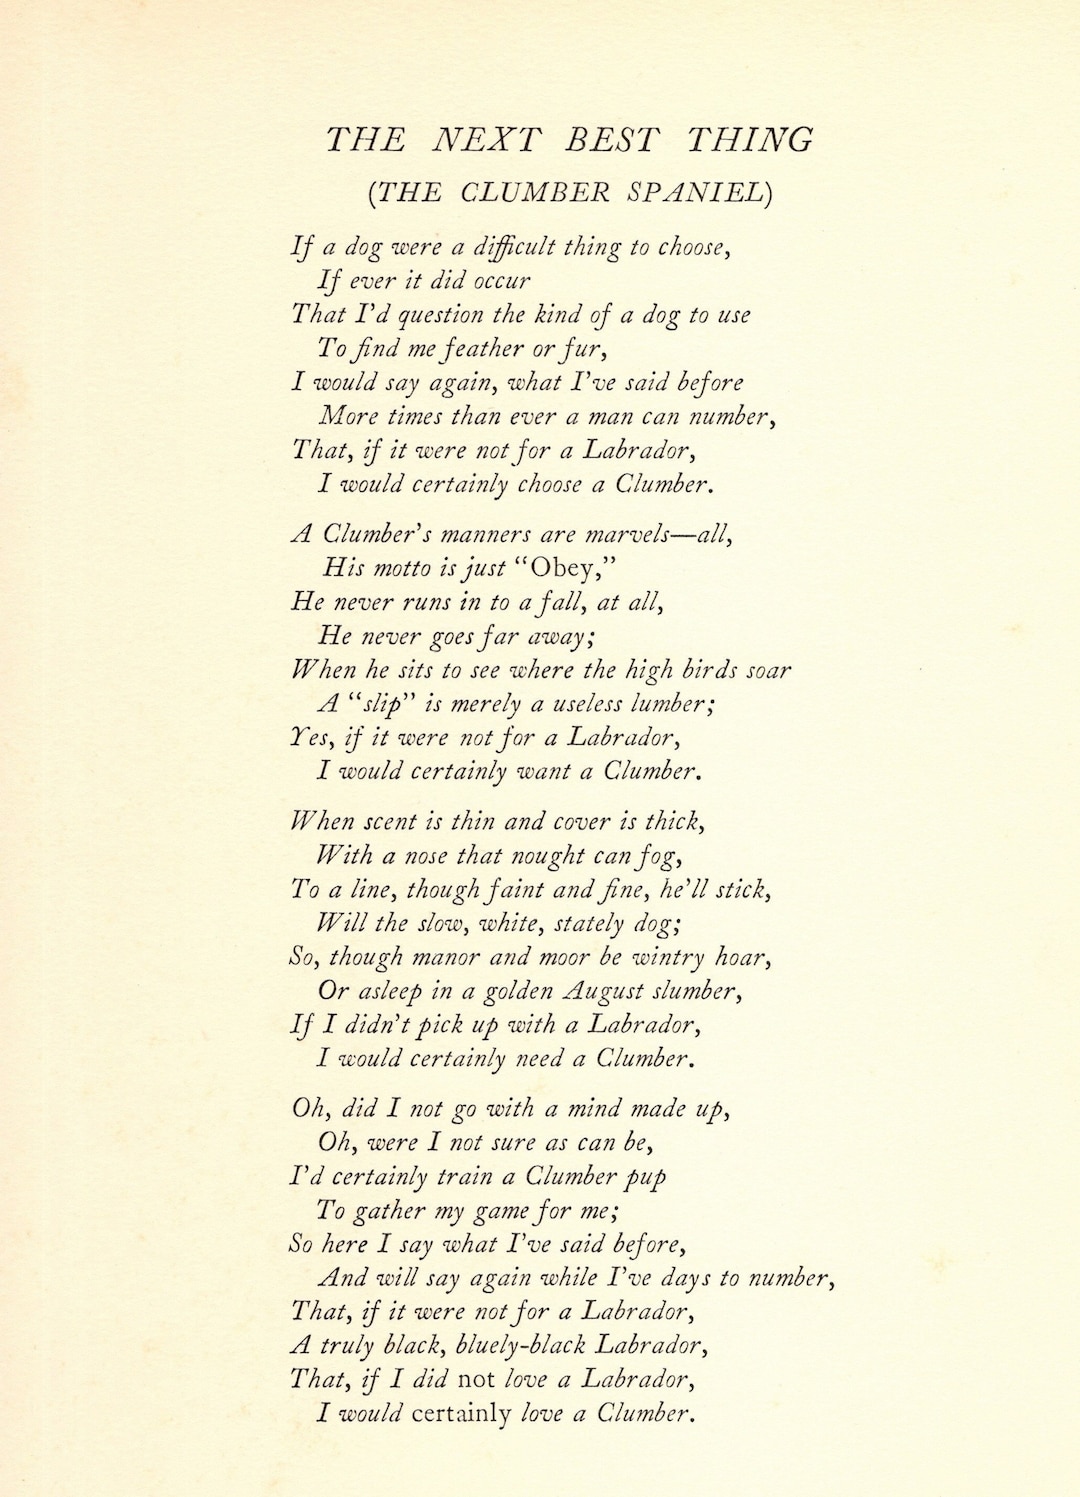 THE NEXT BEST THING
(THE CLUMBER SPANIEL)
If a dog were a difficult thing to choose,
If ever it did occur
That I'd question the kind of a dog to use
To find me feather or fur,
I would say again, what I've said before
More times than ever a man can number,
That, if it were not for a Labrador,
I would certainly choose a Clumber.
A Clumber's manners are marvels—all,
His motto is just "Obey,"
He never runs in to a fall, at all,
He never goes far away;
When he sits to see where the high birds soar
A "slip" is merely a useless lumber;
Yes, if it were not for a Labrador,
I would certainly want a Clumber.
When scent is thin and cover is thick,
With a nose that nought can fog,
To a line, though faint and fine, he'll stick,
Will the slow, white, stately dog;
So, though manor and moor be wintry hoar,
Or asleep in a golden August slumber,
If I didn't pick up with a Labrador,
I would certainly need a Clumber.
Oh, did I not go with a mind made up,
Oh, were I not sure as can be,
I'd certainly train a Clumber pup
To gather my game for me;
So here I say what I've said before,
And will say again while I've days to number,
That, if it were not for a Labrador,
A truly black, bluely-black Labrador,
That, if I did not love a Labrador,
I would certainly love a Clumber.